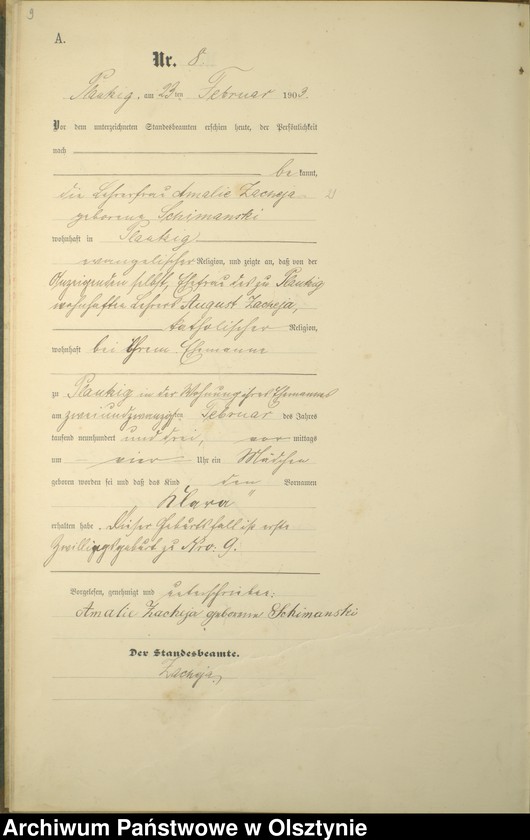 9
A.
Nr. 8.
Plautzig, am 23ten Februar 1903.
Vor dem unterzeichneten Standesbeamten erschien heute, der Persönlichkeit
nach
be kannt,
die Lehrerfrau Amalie Zacheja
geborene Schimanski
wohnhaft in Plautzig
evangelischer Religion, und zeigte an, daß von der
Anzeigenden selbst, Ehefrau des zu Plautzig
wohnhaften Lehrers August Zacheja,
katholischer Religion,
wohnhaft bei ihrem Ehemanne
zu Plautzig in der Wohnung ihres Ehemannes
am zweiundzwanzigsten Februar des Jahres
tausend neunhundert und drei, vor mittags
um vier Uhr ein Mädchen
geboren worden sei und daß das Kind den Vornamen
Klara"
erhalten habe. Dieser Geburtsfall ist erste
Zwillingsgeburt zu Nro. 9.
Vorgelesen, genehmigt und unterschrieben:
Amalie Zacheja geborene Schimanski
Der Standesbeamte.
Zacheja
Archiwum Państwowe w Olsztynie